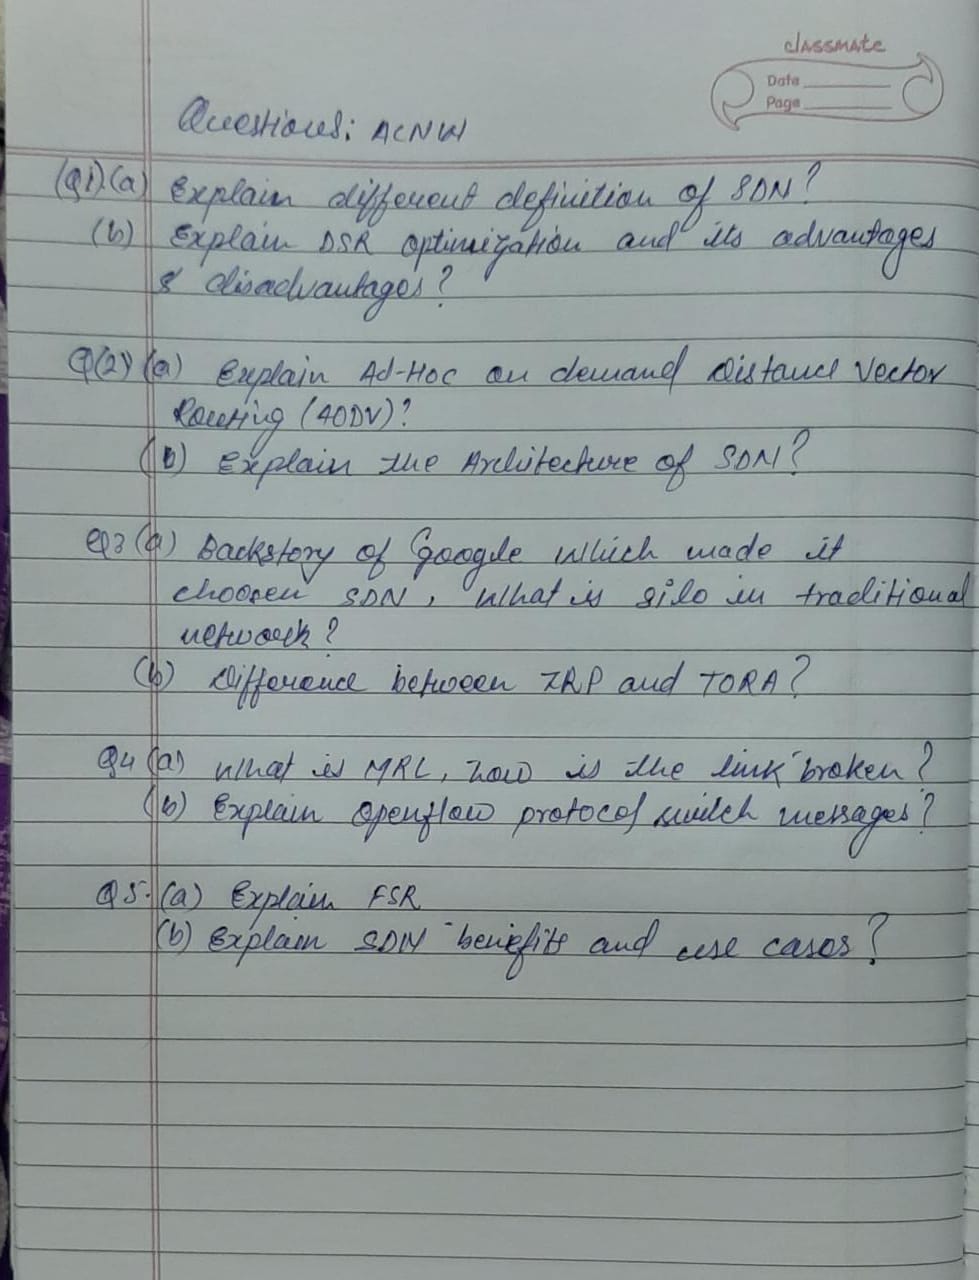 classmate
Date
Page
Questions: ACNW
(Q1).(a) Explain different definition of SDN?
(b) Explain DSR optimization and its advantages
& disadvantages?
Q(2) (a) Explain Ad-Hoc on demand Distance Vector
Routing (AODV)?
(b) Explain the Architecture of SDN?
Q3 (a) Backstory of Google which made it
choosen SDN, What is silo in traditional
network?
(b) Difference between ZRP and TORA?
Q4 (a) What is MRL, how is the link broken?
(b) Explain openflow protocol switch messages?
Q5. (a) Explain FSR
(b) Explain SDN benefits and use cases?